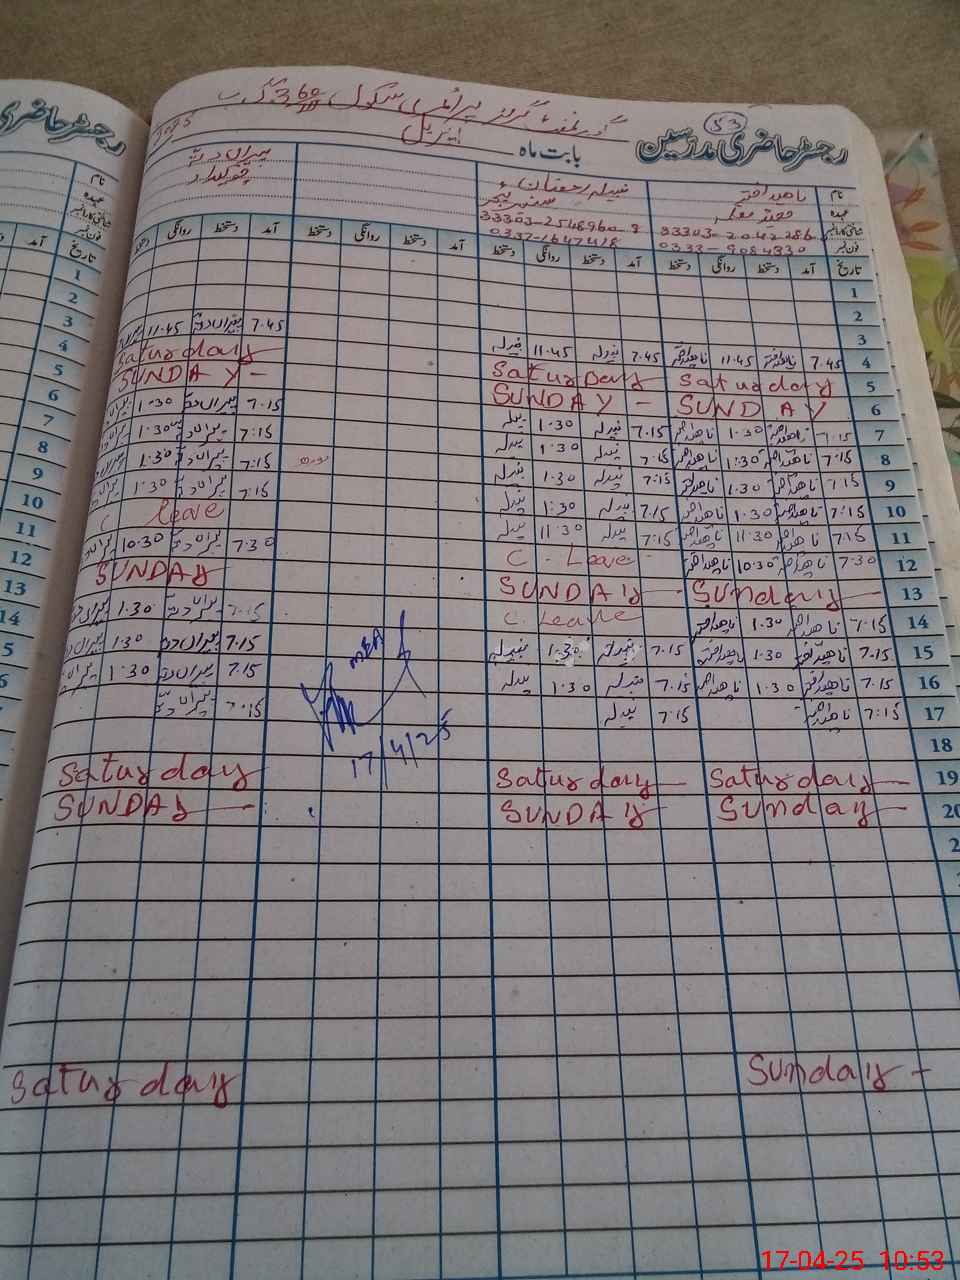 رجسٹر حاضری مدرسین
53
گورنمنٹ گرلز پرائمری سکول 360 گ ب
بابت ماہ اپریل 2025
نام ناھید اختر نبیلہ رمضان
عہدہ
33303-2042286 33303-2548960-8
فون نمبر 0333-9084330 0332-1647418
تاریخ آمد دستخط روانگی دستخط آمد دستخط روانگی دستخط آمد دستخط روانگی دستخط آمد دستخط روانگی دستخط
1
2
3 7.45 11.45
4 7.45 ناھید اختر 11.45 ناھید اختر 7.45 نبیلہ 11.45 نبیلہ Saturday
5 Saturday Saturday SUNDAY -
6 SUNDAY SUNDAY -
7 7.15 ناھید اختر 1.30 ناھید اختر 7.15 نبیلہ 1.30 نبیلہ 7.15 1.30
8 7:15 ناھید اختر 1:30 ناھید اختر 7.15 نبیلہ 1.30 نبیلہ 7:15 1.30
9 7.15 ناھید اختر 1.30 ناھید اختر 7:15 نبیلہ 1.30 نبیلہ 7:15 1.30
10 7:15 ناھید اختر 1.30 ناھید اختر 7.15 نبیلہ 1:30 نبیلہ 7:15 1.30
11 7.15 ناھید اختر 11.30 ناھید اختر 7:15 نبیلہ 11.30 نبیلہ C leave
12 7.30 ناھید اختر 10.30 ناھید اختر C - Leave 7.30 10.30
13 Sunday SUNDAY SUNDAY
14 7.15 ناھید اختر 1.30 ناھید اختر C. Leave 7.15 1.30
15 7.15 ناھید اختر 1.30 ناھید اختر 7.15 نبیلہ 1.30 نبیلہ 7.15 1.30
16 7.15 ناھید اختر 1.30 ناھید اختر 7.15 نبیلہ 1.30 نبیلہ 7.15 1.30
17 7:15 ناھید اختر 7.15 نبیلہ 7.15
MEA
17/4/25
18
19 Saturday Saturday Saturday
20 Sunday SUNDAY SUNDAY
Sunday - Saturday
رجسٹر حاضری
نام
عہدہ
فون نمبر
تاریخ آمد
1
2
3
4
5
6
7
8
9
10
11
12
13
14
17-04-25 10:53